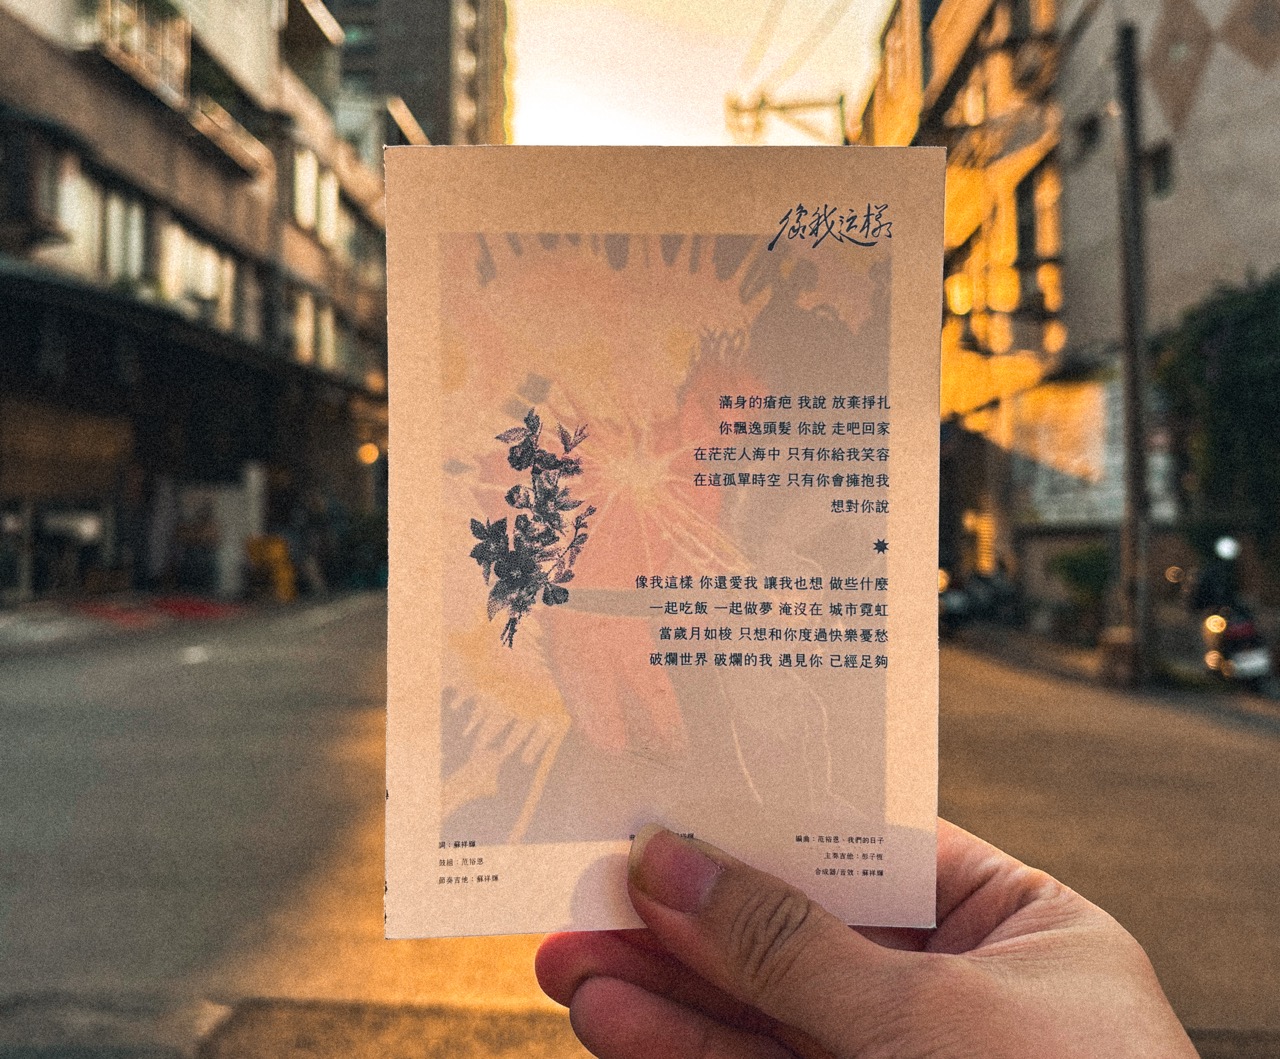 像我這樣
滿身的瘡疤 我說 放棄掙扎
你飄逸頭髮 你說 走吧回家
在茫茫人海中 只有你給我笑容
在這孤單時空 只有你會擁抱我
想對你說
像我這樣 你還愛我 讓我也想 做些什麼
一起吃飯 一起做夢 淹沒在 城市霓虹
當歲月如梭 只想和你度過快樂憂愁
破爛世界 破爛的我 遇見你 已經足夠
詞：蘇祥輝
鼓組：范裕恩
節奏吉他：蘇祥輝
編曲：范裕恩、我們的日子
主奏吉他：彭子恆
合成器/音效：蘇祥輝